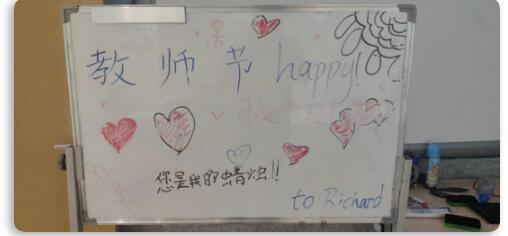 教师节 happy!
您是我的蜡烛!!
to Richard